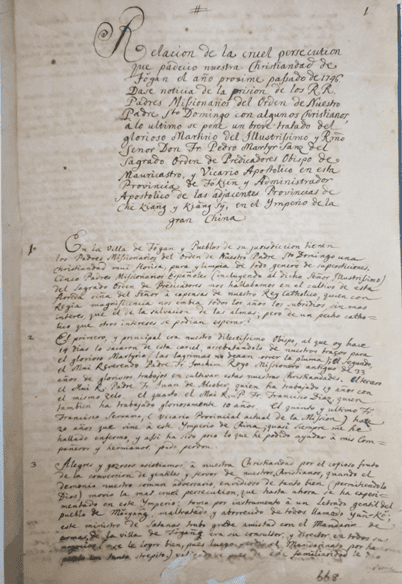 #
1
Relacion de la cruel persecution
que padecio nuestra Christiandad de
Fogan el año proxime passado de 1746
Dase noticia de la prision de los R.R.
Padres Missionarios del Orden de Nuestro
Padre Sto Domingo con algunos Christianos,
a lo ultimo se pone un breve tratado del
glorioso Martirio del Illustrissimo y Rmo
Señor Don Fr Pedro Martyr Sanz del
Sagrado Orden de Predicadores Obispo de
Mauricastro, y Vicario Apostolico en esta
Provincia de Fokien y Administrador
Apostolico de las adjacentes Provincias de
Che Kiang y Kiang Sy, en el Ymperio de la
gran China
1 En la Villa de Fogan y Pueblos de su jurisdiccion tienen
los Padres Missionarios del Orden de Nuestro Padre Sto Domingo una
Christiandad mui florida, pura y limpia de todo genero de supersticiones,
Cinco Padres Missionarios Españoles (incluyendo al dicho Señor Illustrissimo)
del Sagrado Orden de Predicadores nos hallabamos en el cultivo de esta
florida viña del Señor a expensas de nuestro Rey Catholico, quien con
Regia magnificencia nos embia todos los años los subsidios, sin mas
interes, que el de la salvacion de las almas, pero de un pecho catho-
lico que otros intereses se podian esperar?
2 El primero, y principal era nuestro dilectissimo Obispo, al que oy hace
14 dias le sacaron de esta carcel arrebatandole de nuestros brazos para
el glorioso Martyrio (las lagrimas no dejan correr la pluma) El Segundo
el Mui Reverendo Padre Fr Joachin Royo Missionario antiguo de 33
años de gloriosos trabajos en cultivar estas nuestras Christiandades. El tercero
el Mui R. Padre Fr Juan de Alcober, quien ha trabajado 19 años con
el mismo zelo. El quarto el Mui R. P. Fr Francisco Diaz, quien
tambien ha trabajado gloriosamente 10 años. El quinto y ultimo Fr
Francisco Serrano, (Vicario Provincial actual de la Mission) hace
20 años que vine a este Imperio de China, quasi siempre me he
hallado enfermo, y assi ha sido poco lo que he podido ayudar a mis Com-
pañeros y hermanos, pido perdon.
3 Alegres y gozosos assistiamos a nuestra Christiandad por el copioso fruto
de la conversion de gentiles, y fervor de nuestros Christianos, quando el
demonio nuestro comun adversario, envidioso de tanto bien (permitiendolo
Dios) movio la mas cruel persecucion, que hasta ahora se ha experi-
mentado en este Imperio; tomo por instrumento a un Letrado gentil del
pueblo de Moyang, maltratado y aborrecido de todos llamado
este ministro de Satanas trabo grande amistad con el Mandarin de
armas de la villa de Fogan con su consultor, y director en todos sus
663